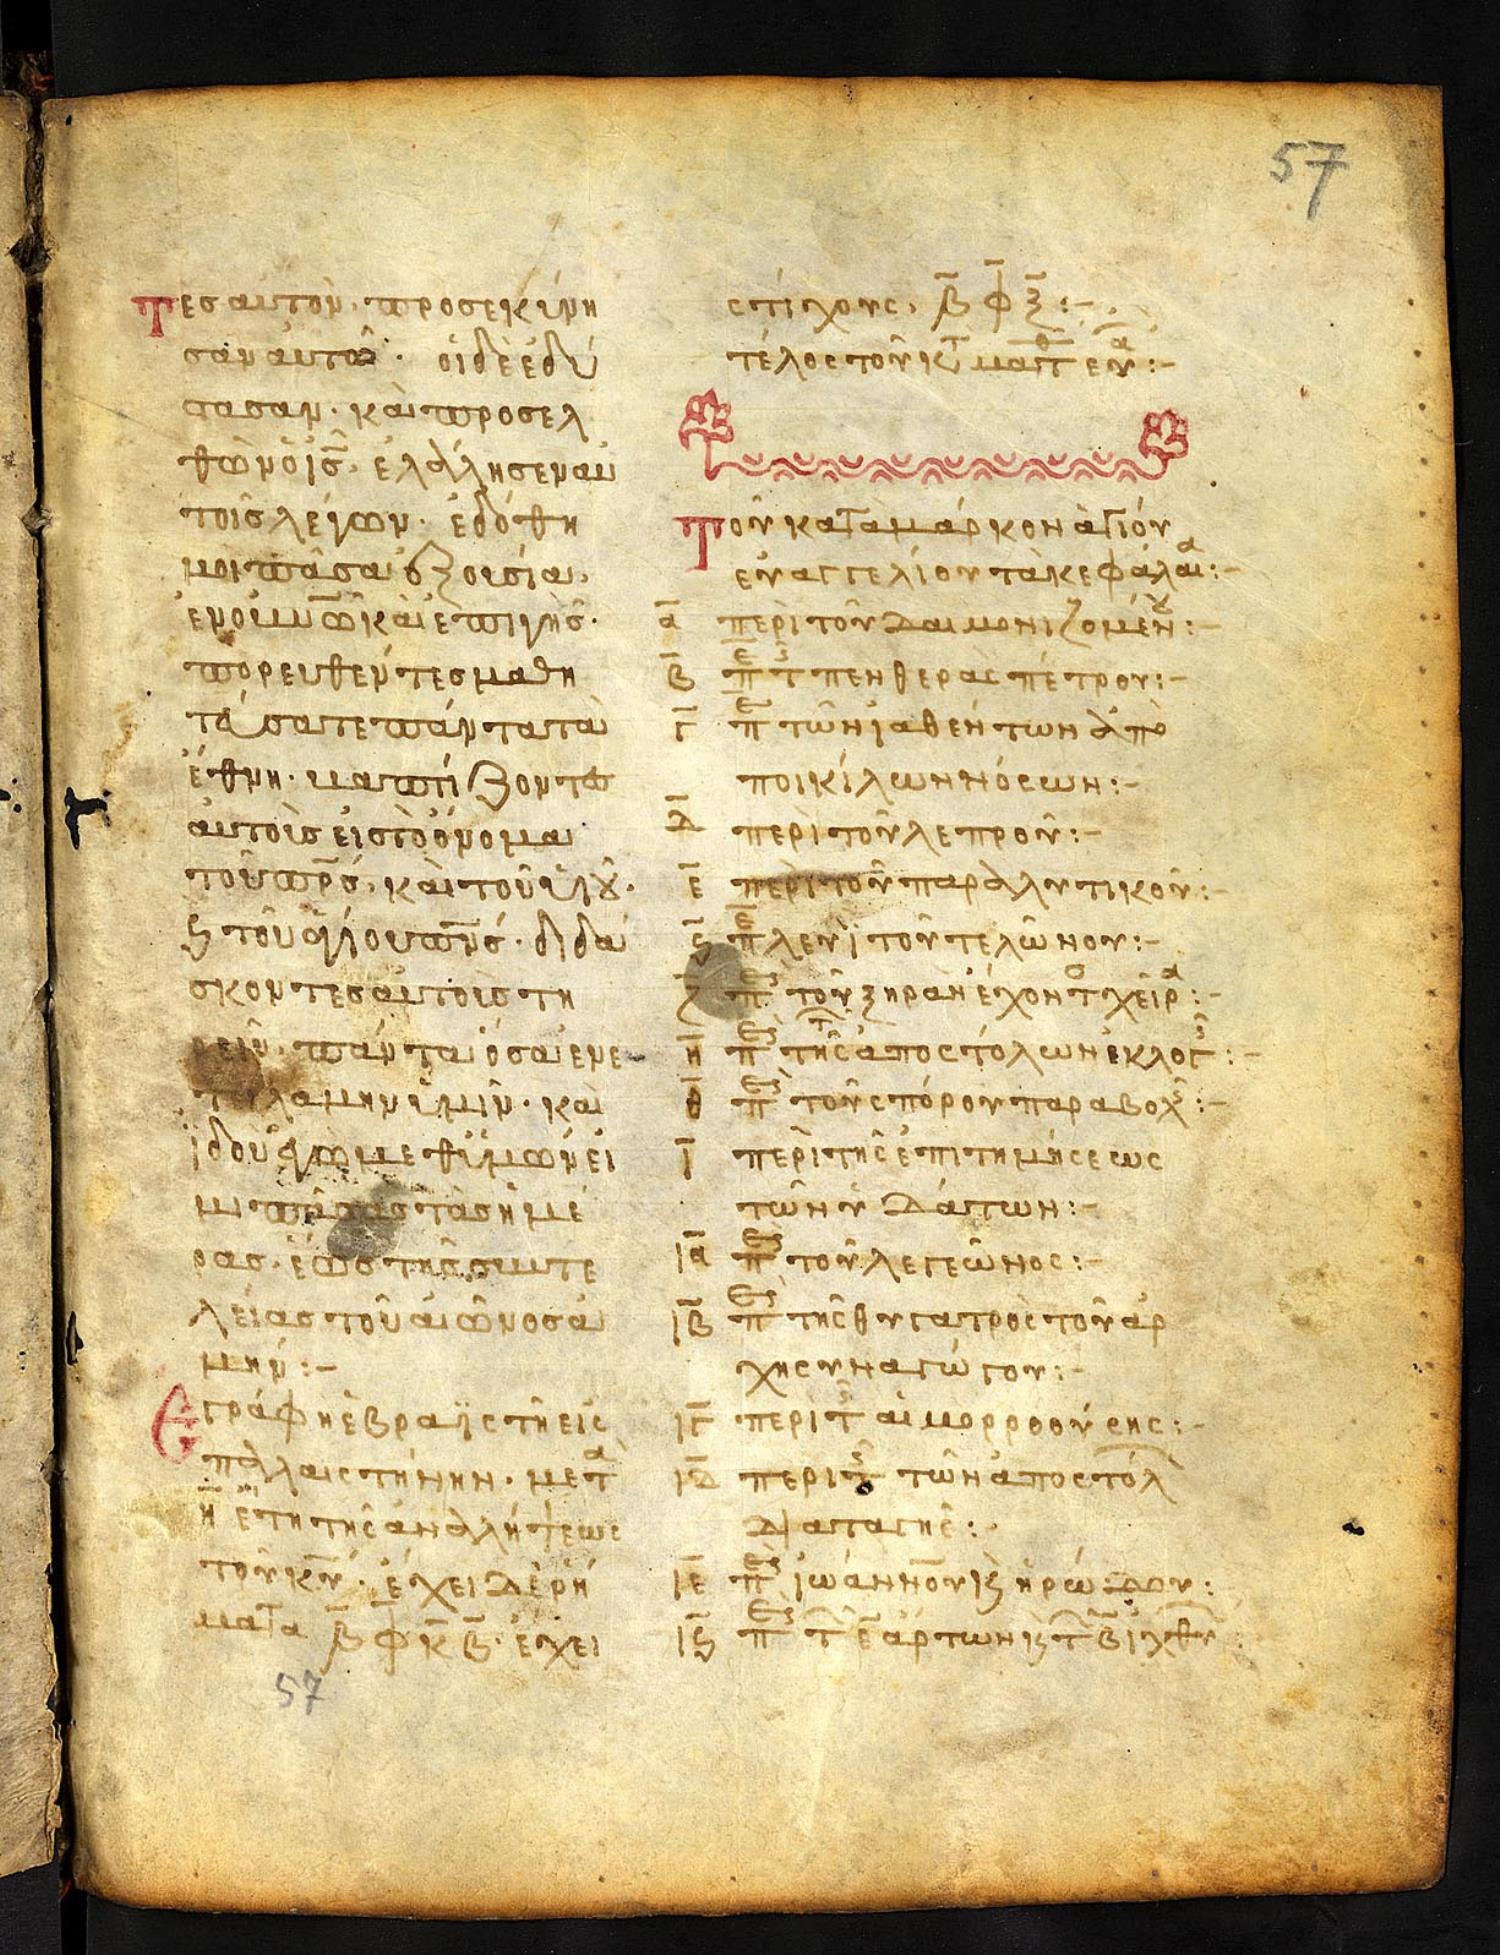 57
τες αυτὸν· προσεκύνη
σαν αυτῶ· οἱ δὲ ἐδί
στασαν· καὶ προσελ
θὼν ὁ ις̄· ἐλάλησεν αυ
τοῖς λέγων· ἐδόθη
μοι πᾶσα ἐξουσία·
ἐν οὐνῶ καὶ ἐπὶ γῆς·
πορευθέντες μαθη
τεύσατε πάντα τὰ
ἔθνη· βαπτίζοντες
αυτοὺς εἰς τὸ ὄνομα
τοῦ πρ̄ς· καὶ τοῦ υἱοῦ·
ϗ τοῦ ἁγίου πν̄ς· διδά
σκοντες αυτοὺς τη
ρεῖν· πάντα ὅσα ἐνε
τειλάμην ὑμῖν· καὶ
ἰδοὺ ἐγὼ μεθ ὑμῶν εἰ
μι πάσας τὰς ἡμέ
ρας· ἕως τῆς συντε
λείας τοῦ αἰῶνος ἀ
μήν:–
Εγράφη ἑβραϊστὴ εἰς
παλαιστήνην· μετα
η̄ ἔτη τῆς ἀναλήψεως
τοῦ κ̄υ· ἔχει δὲ ρή
ματα β̄φ̄κ̄β̄· ἔχει
57
στίχους, β̄φ̄ξ̄:–
τέλος τοῦ κτ ματθ ευα:–
Τοῦ κατα μάρκον ἁγίου
εὐαγγελίου τὰ κεφάλαια:–
ᾱ περὶ τοῦ δαιμονιζομέν:–
β̄ πε τ πενθερᾶς πέτρου:–
γ̄ πε τῶν ἰαθέντων ἀπὸ
ποικίλων νόσων:–
δ̄ περὶ τοῦ λεπροῦ:–
ε̄ περὶ τοῦ παραλυτικοῦ:–
ς̄ πε λευὶ τοῦ τελώνου:–
ζ̄ πε τοῦ ξηρὰν ἔχοντο χεῖρα:–
η̄ πε τῆς τ ἀποστόλων ἐκλογ:–
θ̄ πε τοῦ σπόρου παραβολ:–
ῑ περὶ τῆς ἐπιτημήσεως
τῶν ὑδάτων:–
ιᾱ πε τοῦ λεγεῶνος:–
ιβ̄ πε τῆς θυγατρὸς τοῦ ἀρ
χησυναγώγου:–
ιγ̄ περὶ τ αἱμορροούσης:–
ιδ̄ περὶ τ τῶν ἀποστόλ
διαταγῆς:·
ιε̄ πε ἰωάννου ϗ ἡρώδου:
ις̄ πε τ ε̄ ἄρτων ϗ τ β̄ ἰχθύ: